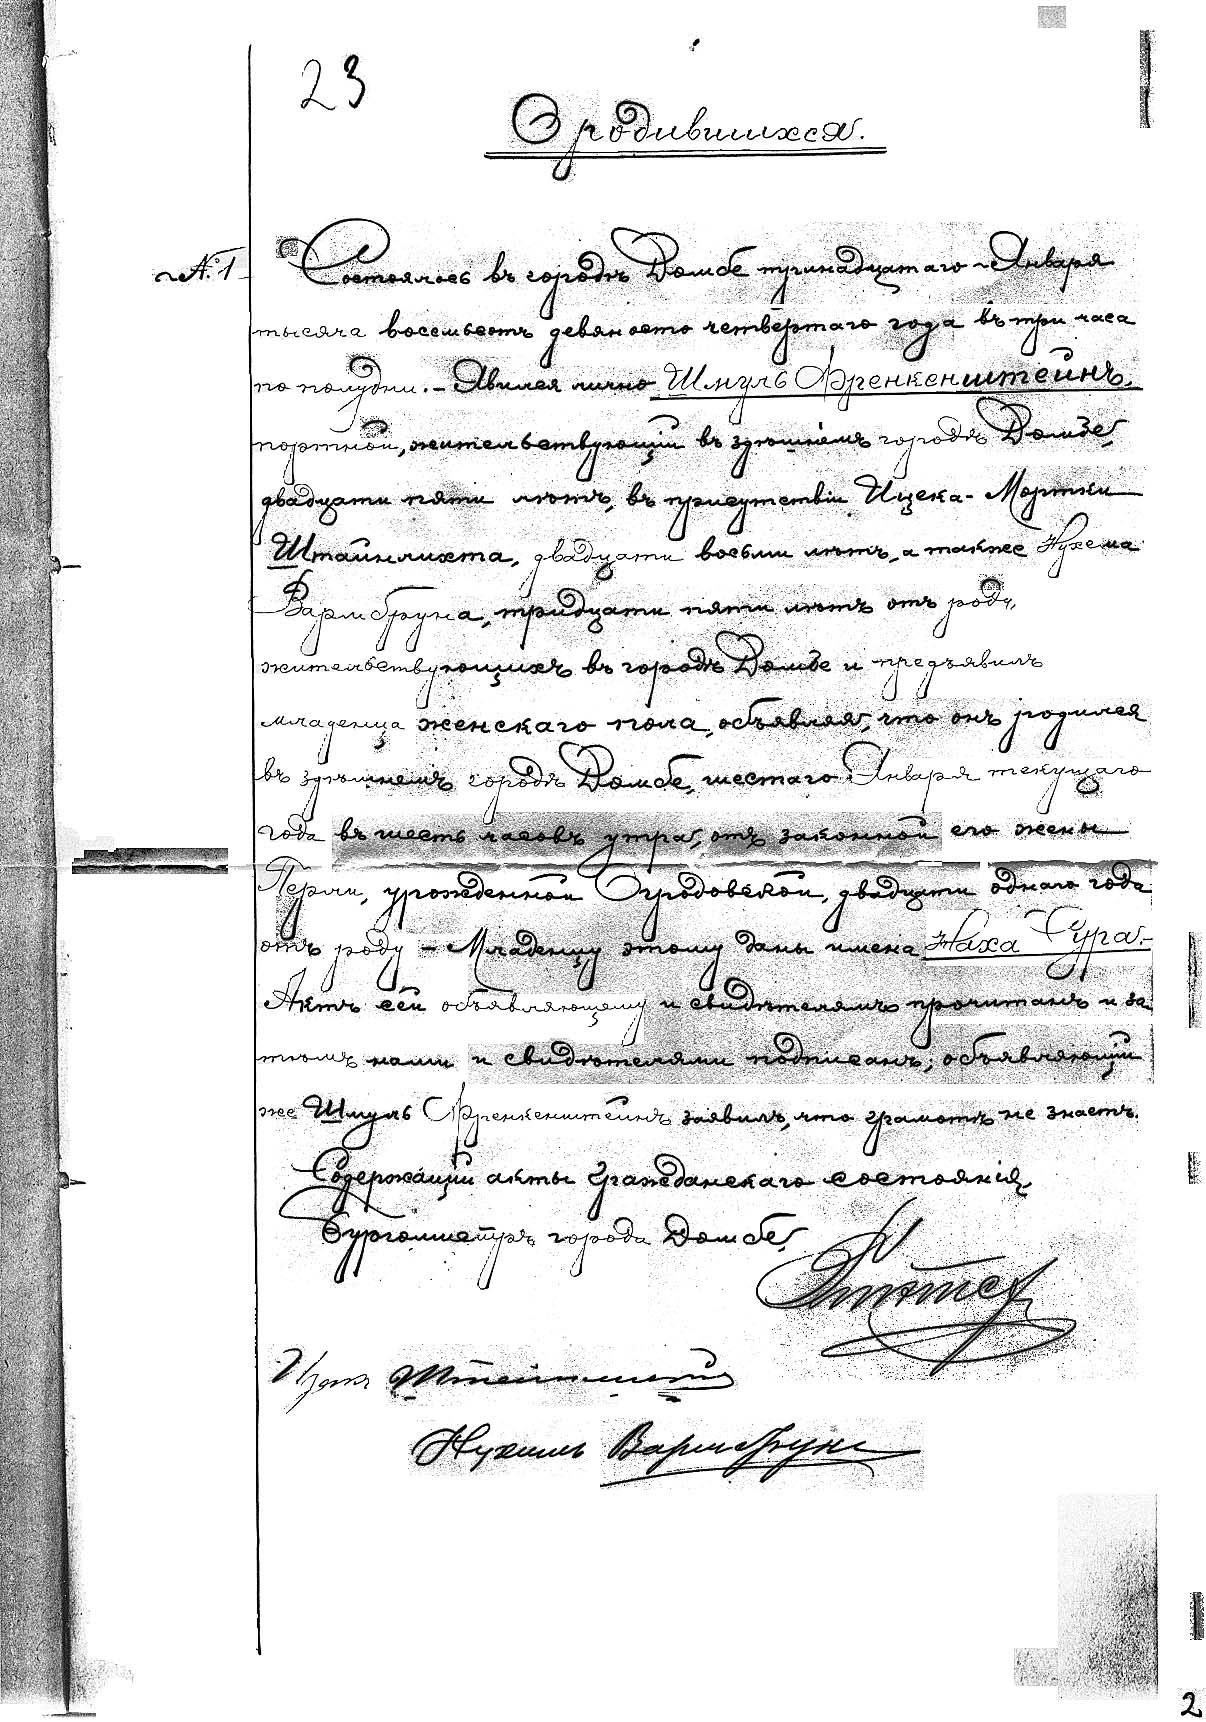 23
О родившихся.
№ 1
Состоялось въ городѣ Домбе тринадцатаго Января
тысяча восемьсотъ девяносто четвёртаго года въ три часа
по полудни. – Явился лично Шмуль Френкенштейнъ,
портной, жительствующій въ здѣшнемъ городѣ Домбе,
двадцати пяти лѣтъ, въ присутствіи Ицека - Мортки
Штайнлихта, двадцати восьми лѣтъ, а также Нухема
Вармбруна, тридцати пяти лѣтъ отъ роду,
жительствующихъ въ городѣ Домбе и предъявилъ
младенца женскаго пола, объявляя, что онъ родился
въ здѣшнемъ городѣ Домбе, шестаго Января текущаго
года въ шесть часовъ утра, отъ законной его жены
Перли, урожденной Огродовской, двадцати однаго года
отъ роду – Младенцу этому даны имена Наха Сура. –
Актъ сей объявляющему и свидѣтелямъ прочитанъ и за
тѣмъ нами и свидѣтелями подписанъ; объявляющій
же Шмуль Френкенштейнъ заявилъ, что грамотѣ не знаетъ.
Содержащій акты гражданскаго состоянія,
Бургомистръ города Домбе,
Нухимъ Вармбрунъ
2